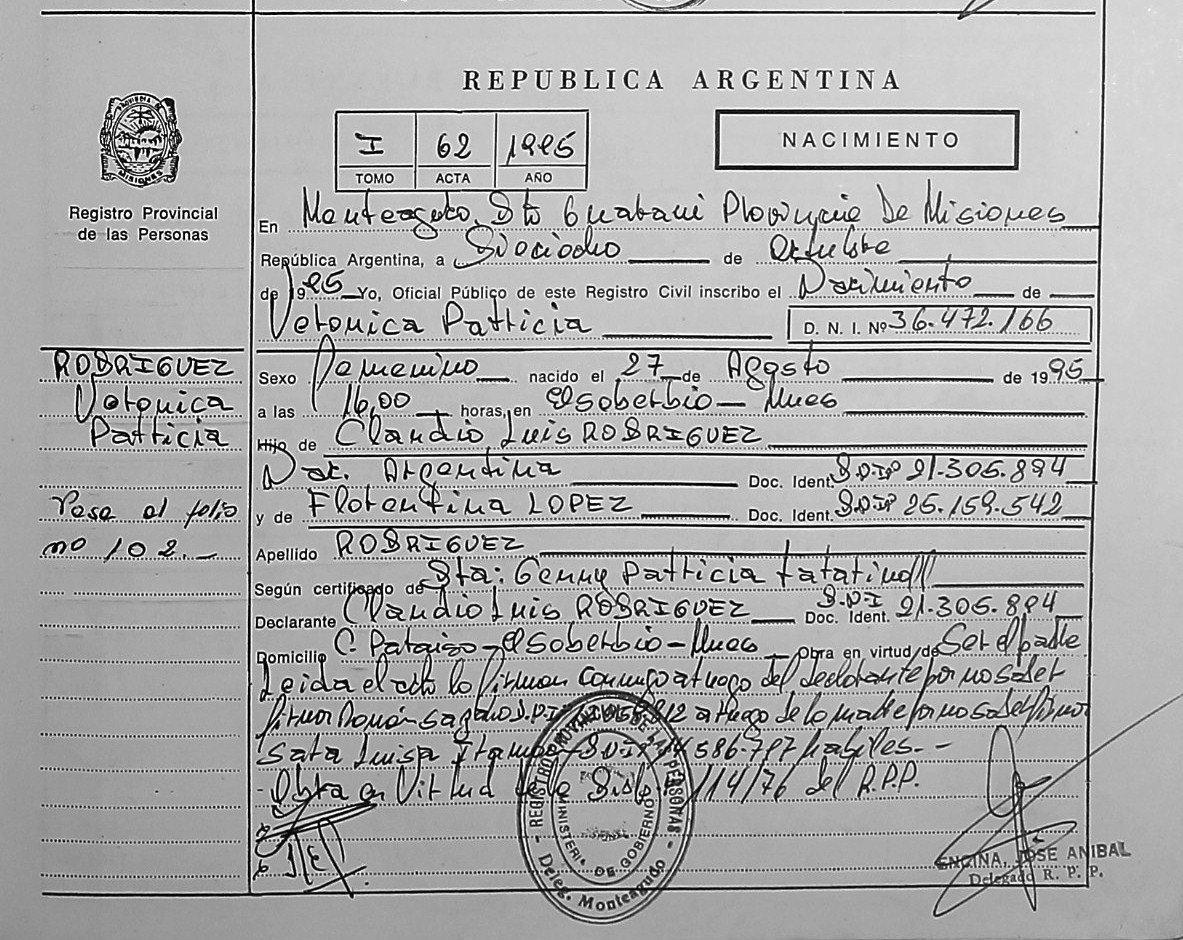 REPUBLICA ARGENTINA
I 62 1995
TOMO ACTA AÑO
NACIMIENTO
PROVINCIA DE MISIONES
Registro Provincial
de las Personas
En Monteagudo Dto Guarani Provincia De Misiones
República Argentina, a Dieciocho de Octubre
de 1995 Yo, Oficial Público de este Registro Civil inscribo el Nacimiento de
Veronica Patricia D. N. I. Nº 36.472.166
RODRIGUEZ
Veronica
Patricia
Pasa al folio
nº 102.-
Sexo Femenino nacido el 27 de Agosto de 1995
a las 16,00 horas, en El Soberbio - Mnes
Hijo de Claudio Luis RODRIGUEZ
Nac. Argentina Doc. Ident. 21.305.894
y de Florentina LOPEZ Doc. Ident. 25.159.542
Apellido RODRIGUEZ
Según certificado de Sta: Genny Patricia
Declarante Claudio Luis RODRIGUEZ Doc. Ident. 21.305.894
Domicilio C. Paraiso - El Soberbio - Mnes Obra en virtud de Ser el padre
Leida el acta la firman conmigo a ruego del declarante por no saber
firmar Román a ruego de la madre por no saber firmar
Sara Luisa 14.586.797 habiles.-
Obra en Virtud de la 114/76 del R.P.P.
REGISTRO PROVINCIAL DE LAS PERSONAS
MINISTERIO DE GOBIERNO
Deleg. Monteagudo
ENCINA, JOSE ANIBAL
Delegado R. P. P.